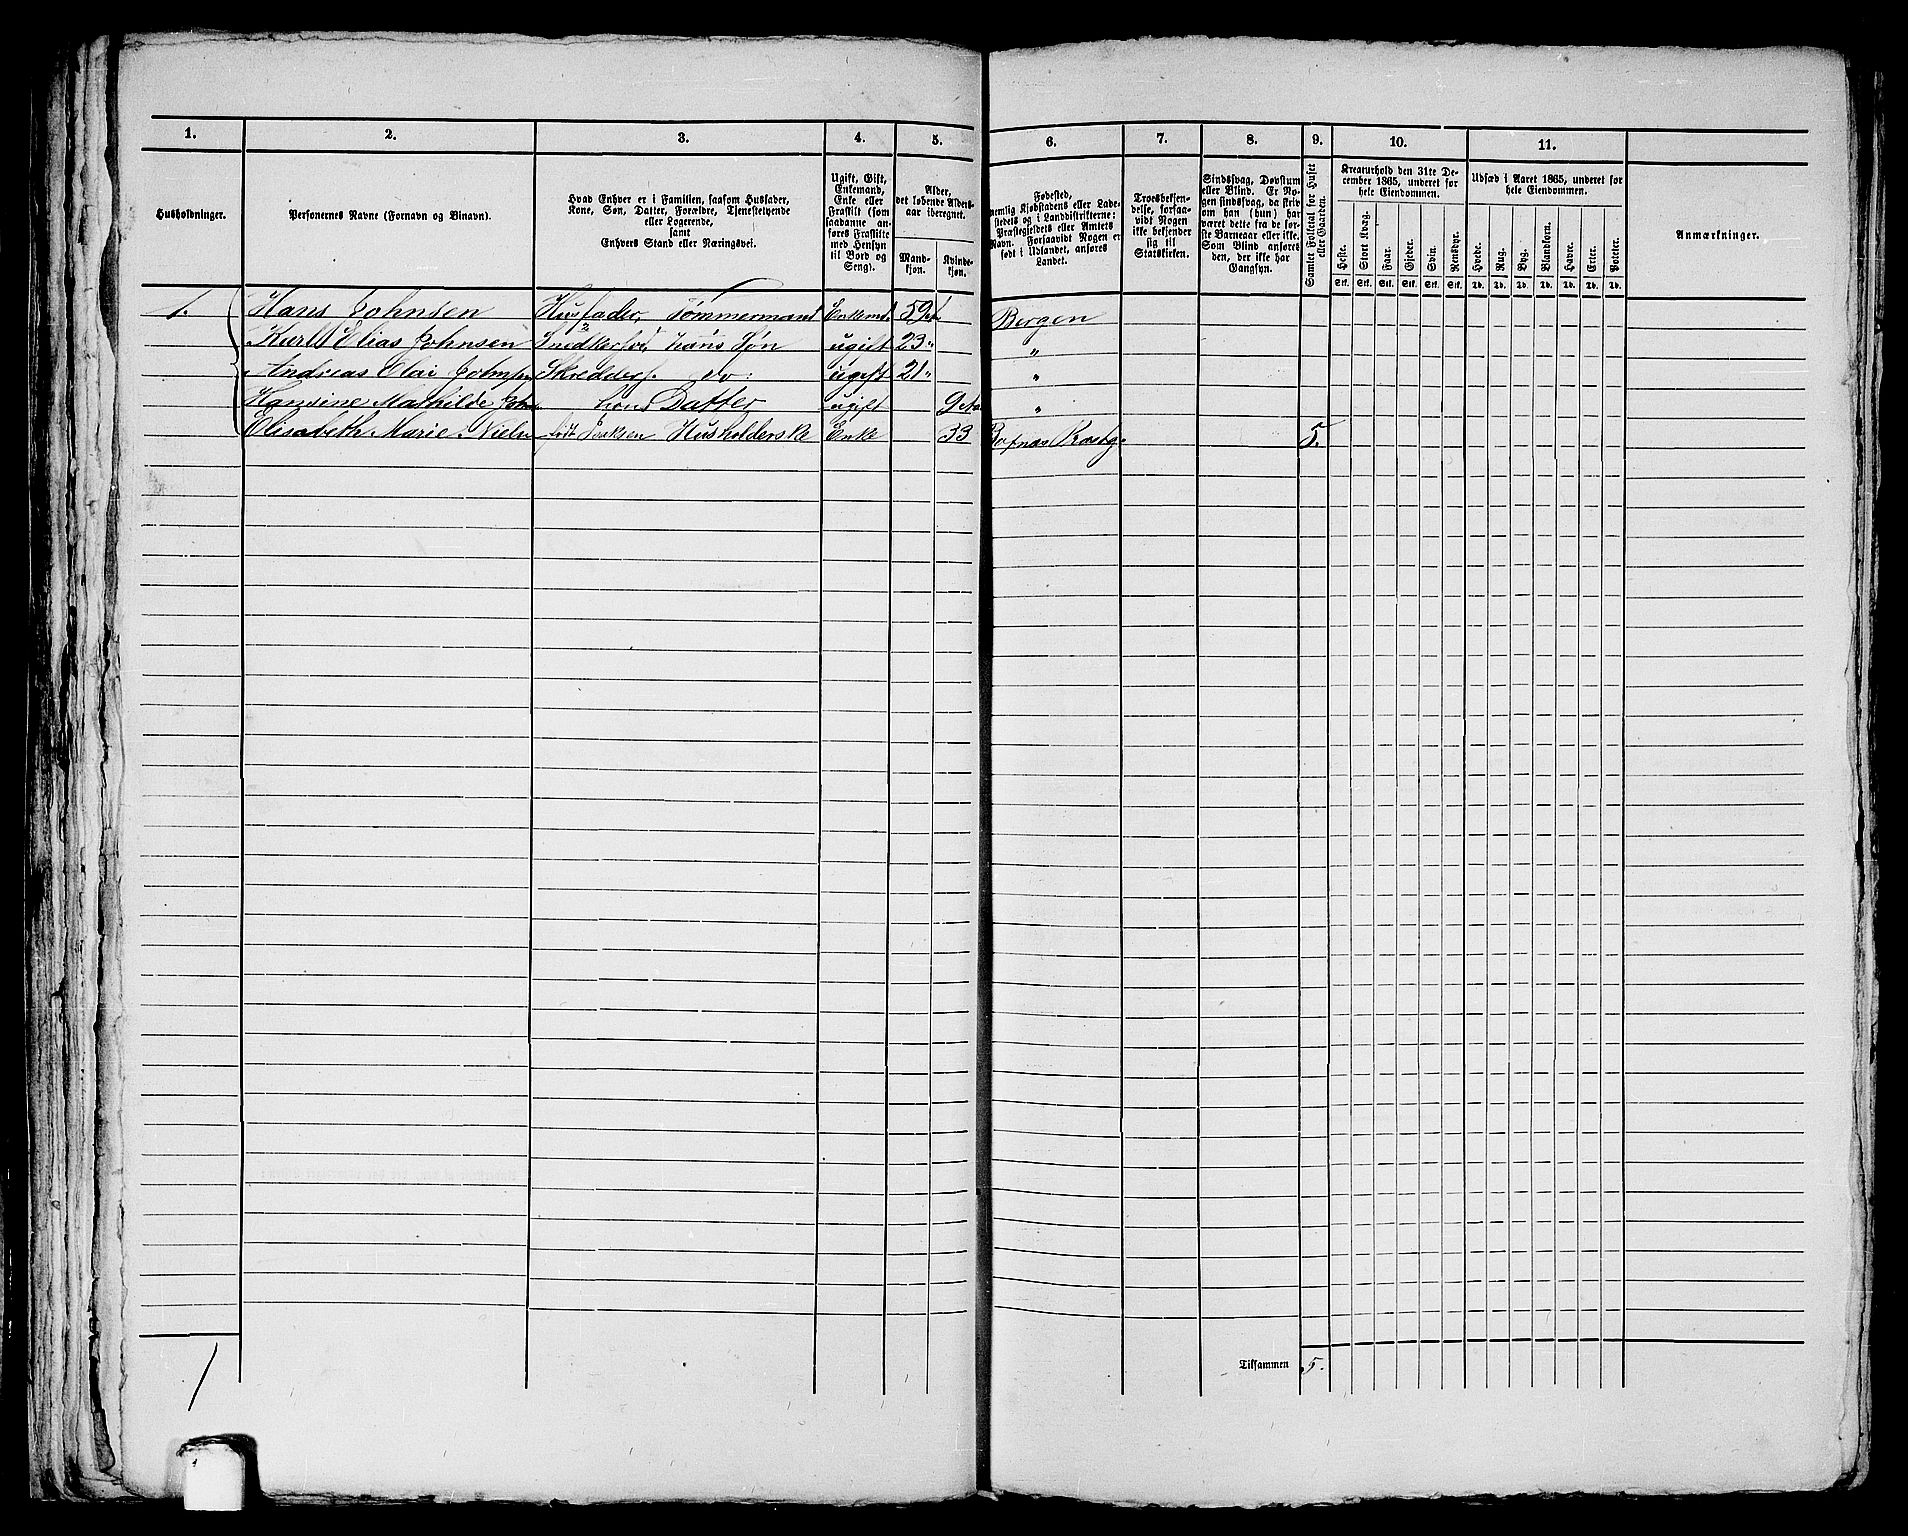 1. 2. 3. 4. 5. 6. 7. 8. 9. 10. 11.
Husholdninger.
Personernes Navne (Fornavn og Binavn).
Hvad Enhver er i Familien, saasom Husfader,
Kone, Søn, Datter, Forældre, Tjenestetyende
eller Logerende,
samt
Enhvers Stand eller Næringsvei.
Ugift, Gift,
Enkemand,
Enke eller
Fraskilt (som
saadanne an-
føres Fraskilte
med Hensyn
til Bord og
Seng).
Alder,
det løbende Alders-
aar iberegnet.
Mand-
kjøn.
Kvinde-
kjøn.
Fødested,
nemlig Kjøbstadens eller Lade-
stedets og i Landdistrikterne:
Præstegjeldets eller Amtets
Navn. Forsaavidt Nogen er
født i Udlandet, anføres
Landet.
Troesbekjen-
delse, forsaa-
vidt Nogen
ikke bekjender
sig til
Statskirken.
Sindssvag, Døvstum
eller Blind. Er No-
gen sindssvag, da skriv
om han (hun) har
været dette fra de før-
ste Barneaar eller ikke.
Som Blind anføres
den, der ikke har
Gangsyn.
Samlet Folketal for Huset
eller Gaarden.
Kreaturhold den 31te De-
cember 1865, underet for
hele Eiendommen.
Heste. Stort Kvæg. Faar. Gjeder. Svin. Rensdyr.
Stk. Stk. Stk. Stk. Stk. Stk.
Udsæd i Aaret 1865, underet for
hele Eiendommen.
Hvede. Rug. Byg. Blandkorn. Havre. Erter. Poteter.
Td. Td. Td. Td. Td. Td. Td.
Anmærkninger.
1. Hans Johnsen Husfader, Tømmermand Enkemd 59 Bergen
Kurt Elias Johnsen hans Søn ugift 23 "
Andreas Olai Johnsen Skredders. do: ugift 21 " "
Hansine Mathilde John hans Datter ugift 9 "
Elisabeth Marie Nielsen født Husholderske Enke 33 5.
Tilsammen 5.
1